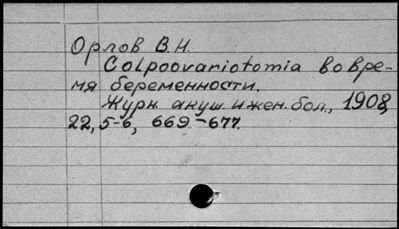 Орлов В.Н.
Colpoovariotomia во вре-
мя беременности.
Журн. акуш. и жен. бол., 1908,
22, 5-6, 669-677.